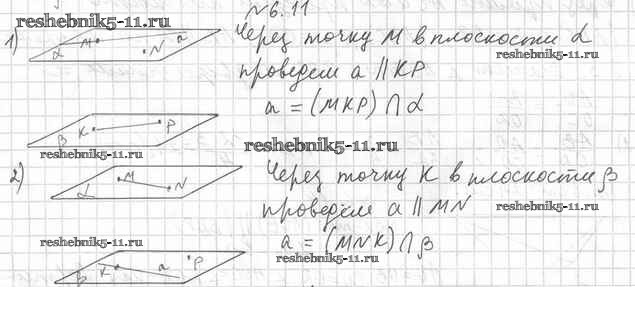 №6.11
reshebnik5-11.ru
1)
M
a
α
N
Через точку M в плоскости α
reshebnik5-11.ru
проведем a || KP
a = (MKP) ∩ α
K
P
β
reshebnik5-11.ru
reshebnik5-11.ru
2)
M
α
N
Через точку K в плоскости β
проведём a || MN
reshebnik5-11.ru
a = (MNK) ∩ β
reshebnik5-11.ru
reshebnik5-11.ru
β
K
a
P